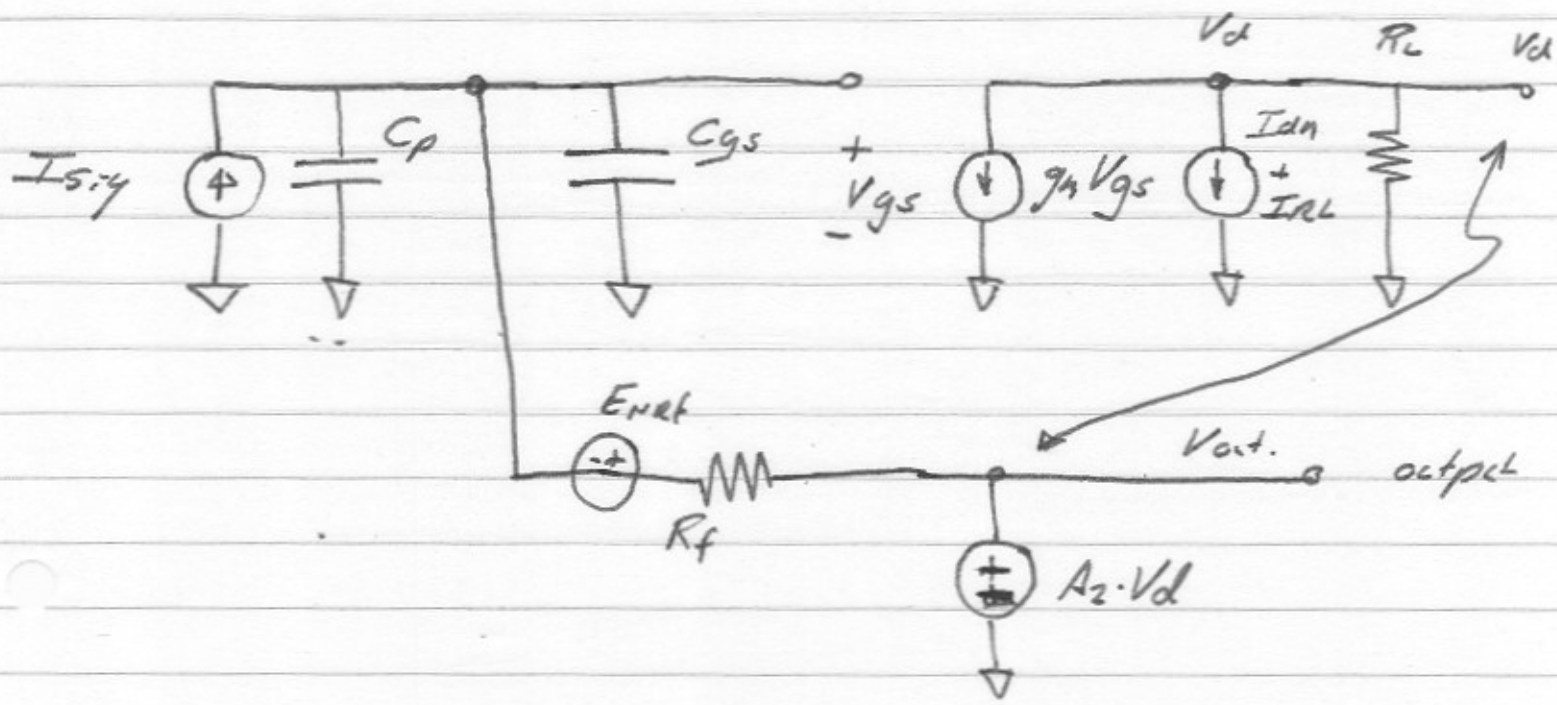 Vd RL Vd
Isig
Cp
Cgs
+
Vgs
-
gmVgs
Idn
+
IRL
ENRf
- +
Rf
Vout.
output
+
A2·Vd